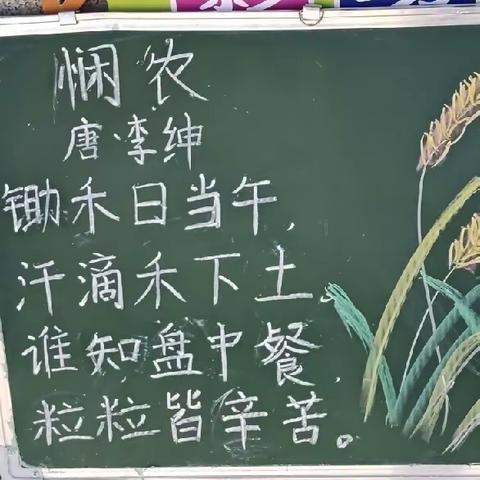 悯农
唐·李绅
锄禾日当午,
汗滴禾下土。
谁知盘中餐,
粒粒皆辛苦。